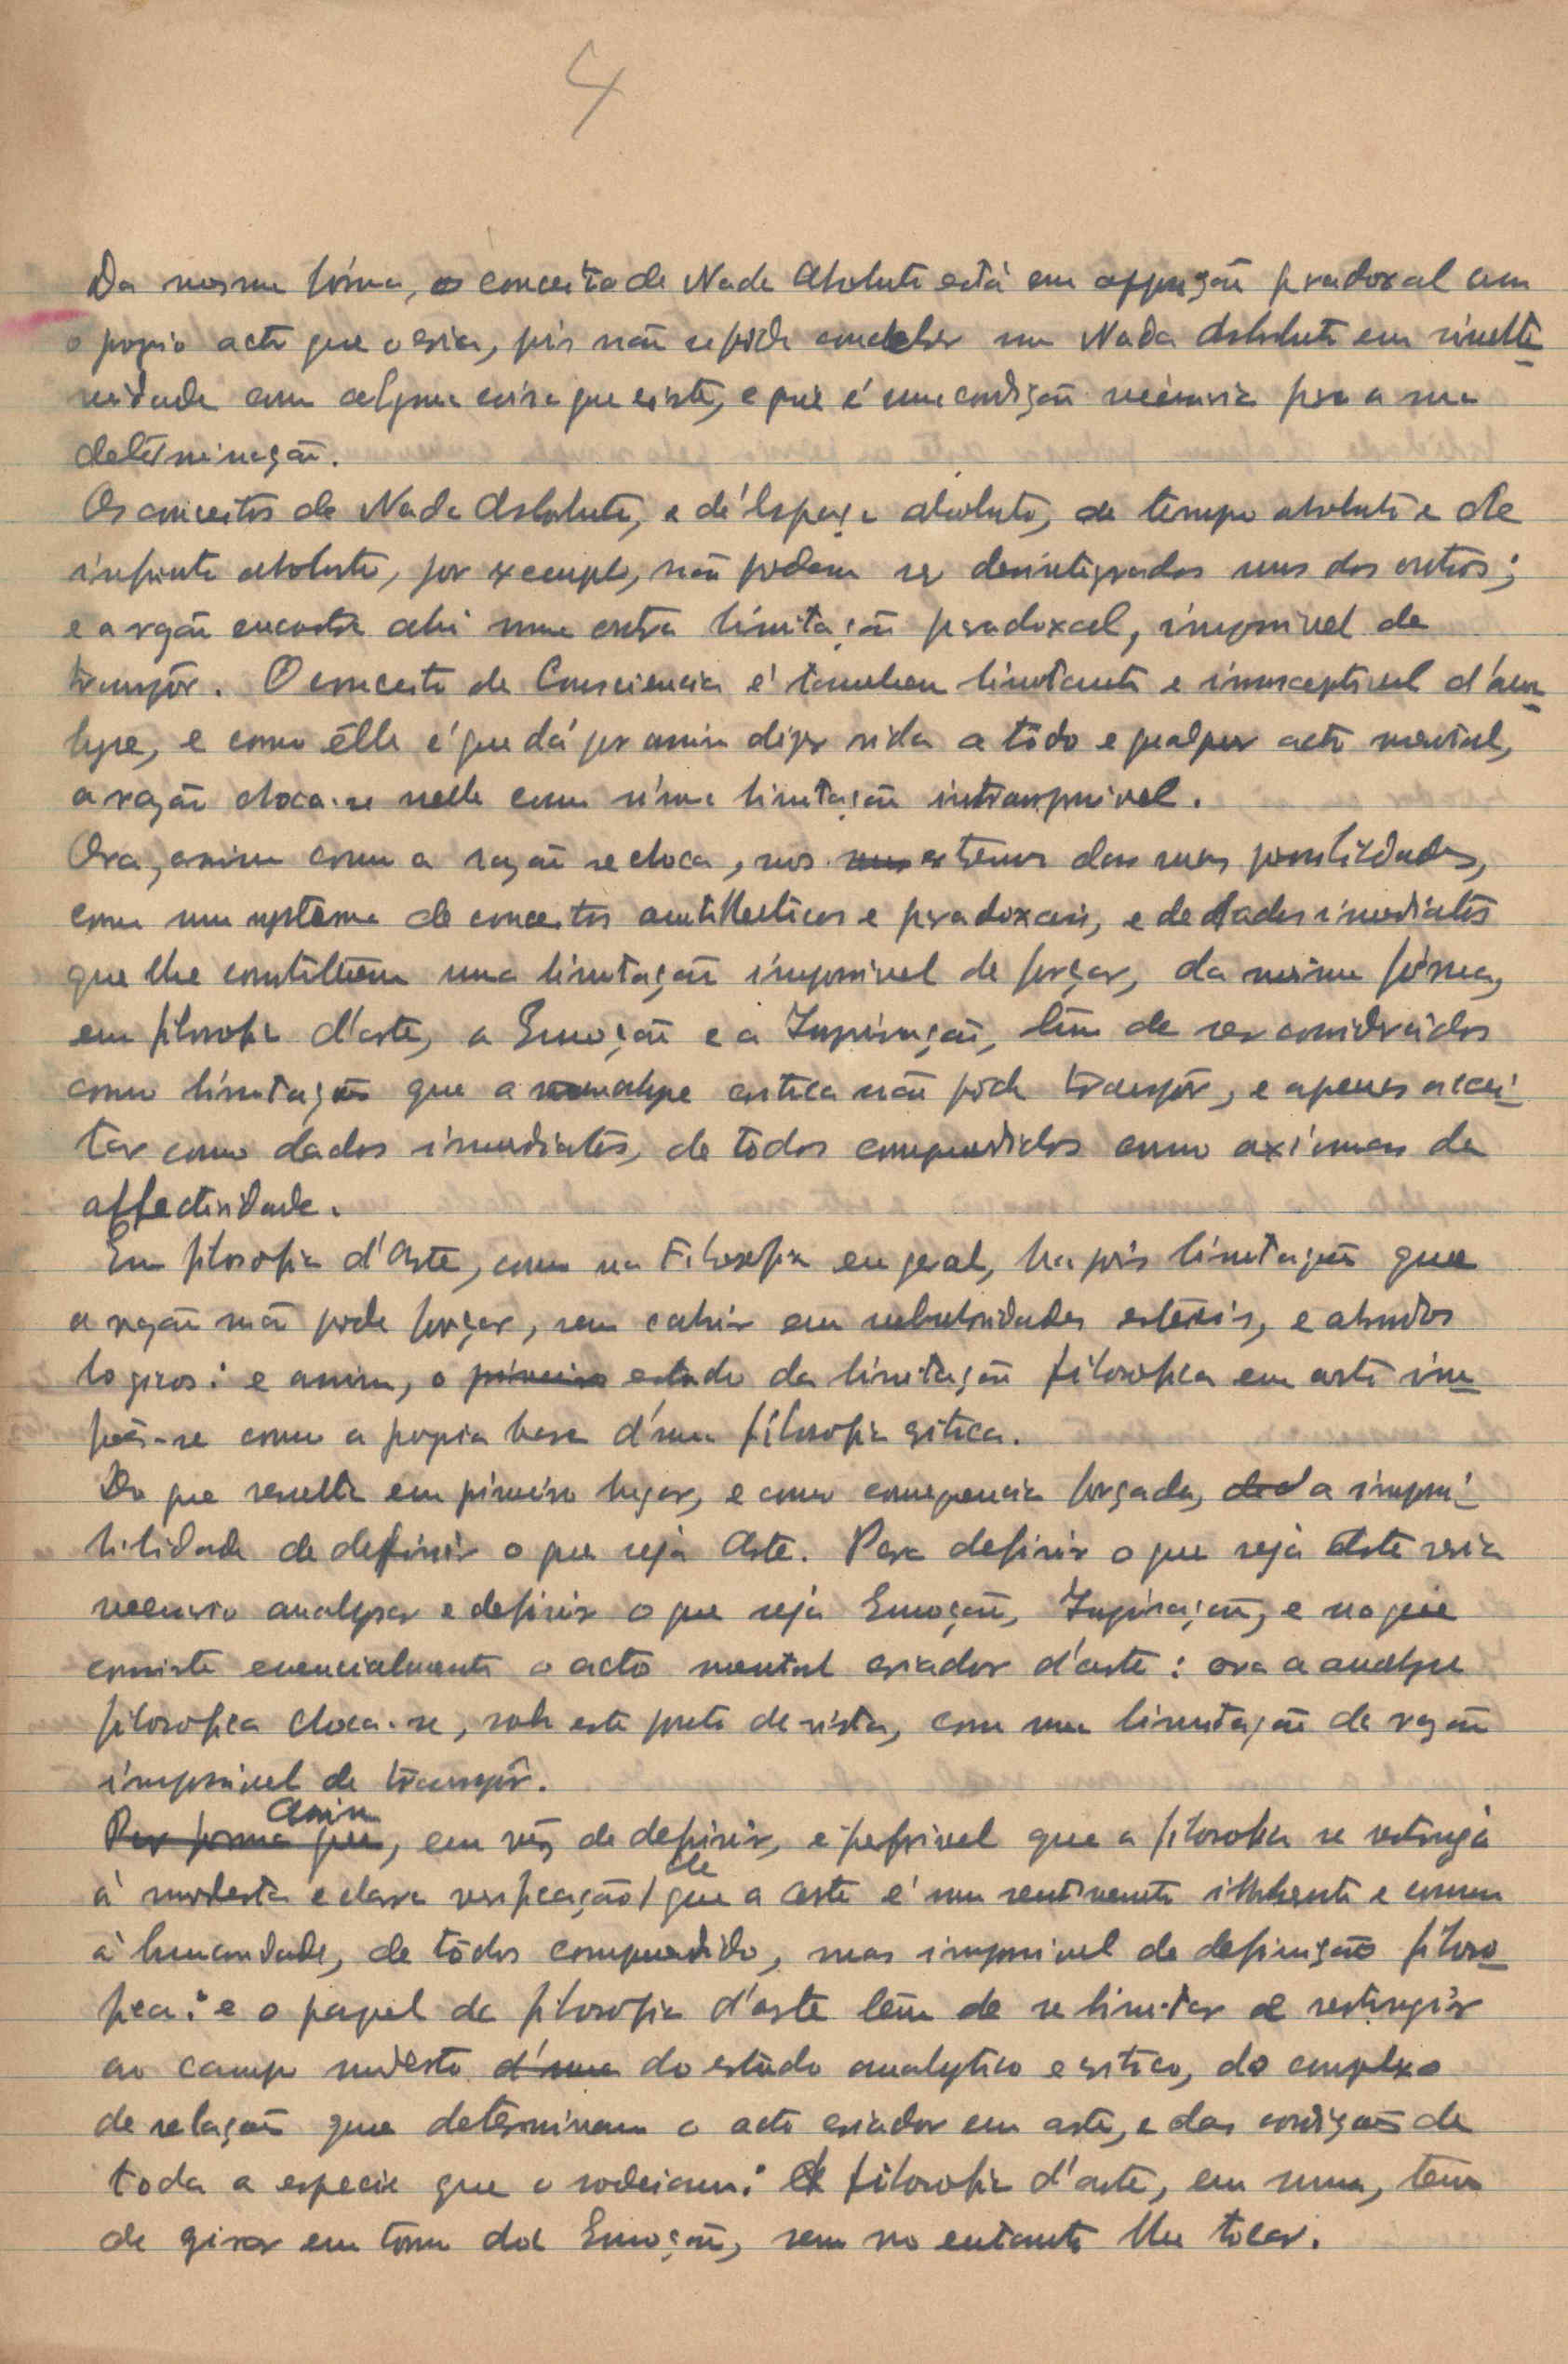 4
Da mesma fórma, o conceito de Nada Absoluto está em opposição paradoxal com
o proprio acto que o cria, pois não se póde conceber um Nada Absoluto em simulta-
neidade com alguma coisa que existe, e que é uma condição necessaria para a sua
determinação.
Os conceitos de Nada Absoluto, e de Espaço absoluto, de tempo absoluto e de
infinito absoluto, por exemplo, não podem ser desintegrados uns dos outros;
e a razão encontra ahi uma outra limitação paradoxal, impossivel de
transpôr. O conceito de Consciencia é tambem limitante e insusceptivel d'ana-
lyse, e como élle é que dá por assim dizer vida a tôdo e qualquer acto mental,
a razão choca-se nelle como n'uma limitação intransponivel.
Ora, assim como a razão se choca, nos extremos das suas possibilidades,
com um systema de conceitos antitheticos e paradoxais, e de dados imediatos
que lhe constituem uma limitação impossivel de forçar, da mesma fórma,
em filosofia d'arte, a Emoção e a Inspiração, têm de ser considerados
como limitações que a analyse critica não póde transpôr, e apenas acei-
tar como dados imediatos, de tôdos compreendidos como axiomas da
affectividade.
Em filosofia d'Arte, como na Filosofia em geral, ha pois limitações que
a razão não pode forçar, sem cahir em subtilidades estéreis, e absurdos
logicos: e assim, o primeiro estudo da limitação filosofica em arte im-
põe-se como a propria base d'uma filosofia critica.
Do que resulta em primeiro lugar, e como consequencia forçada, a impossi-
bilidade de definir o que seja Arte. Para definir o que seja Arte seria
necessario analysar e definir o que seja Emoção, Inspiração, e no que
consiste essencialmente o acto mental criador d'arte: ora a analyse
filosofica choca-se, sob este ponto de vista, com uma limitação da razão
impossivel de transpôr.
Assim
Por forma que, em vez de definir, é preferivel que a filosofia se restrinja
de
á modesta e clara verificação que a arte é um sentimento inherente e comum
á humanidade, de tôdos compreendido, mas impossivel de definição filoso-
fica: e o papel da filosofia d'arte têm de se limitar e restringir
ao campo modesto d'uma do estudo analytico e critico, do complexo
de relações que determinam o acto criador em arte, e das condições de
toda a especie que o rodeiam: A filosofia d'arte, em suma, têm
de girar em tôrno da Emoção, sem no entanto lhe tocar.